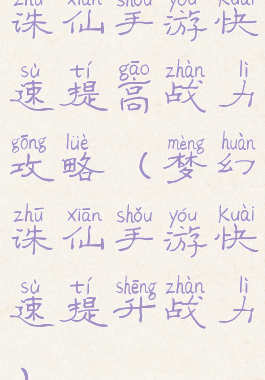 zhū xiān shǒu yóu kuài
诛仙手游快
sù tí gāo zhàn lì
速提高战力
gōng lüè mèng huàn
攻略（梦幻
zhū xiān shǒu yóu kuài
诛仙手游快
sù tí shēng zhàn lì
速提升战力
）